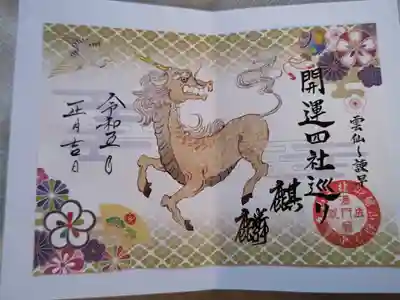 雲仙〜諫早
開運四社巡り
麒麟
令和五年
正月吉日